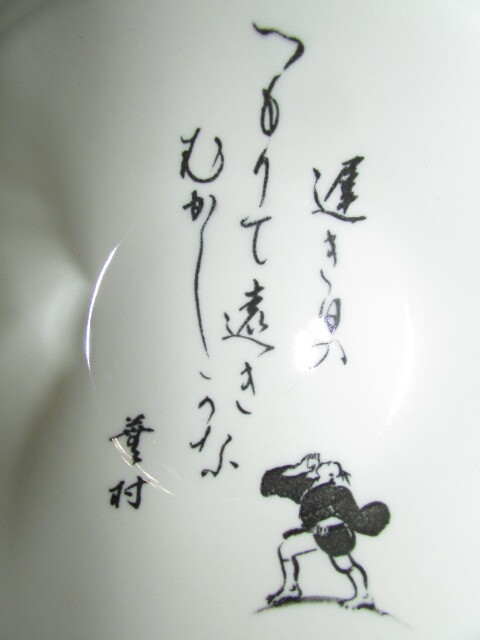 遅き日の
つもりて遠き
むかしかな
蕪村